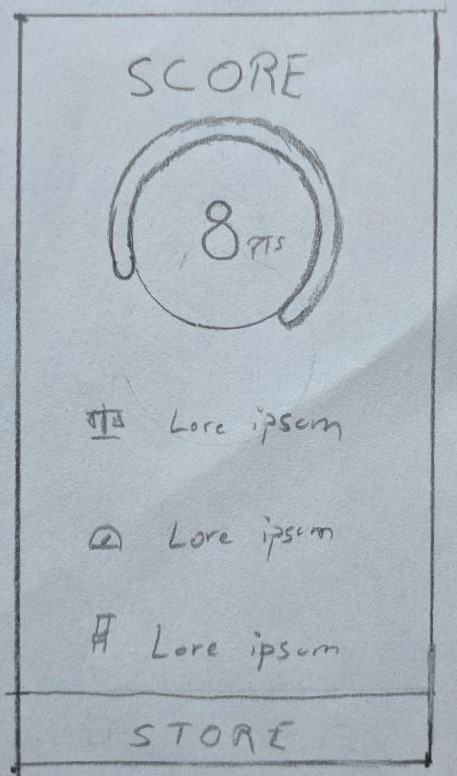 SCORE
8 PTS
Lore ipsum
Lore ipsum
Lore ipsum
STORE